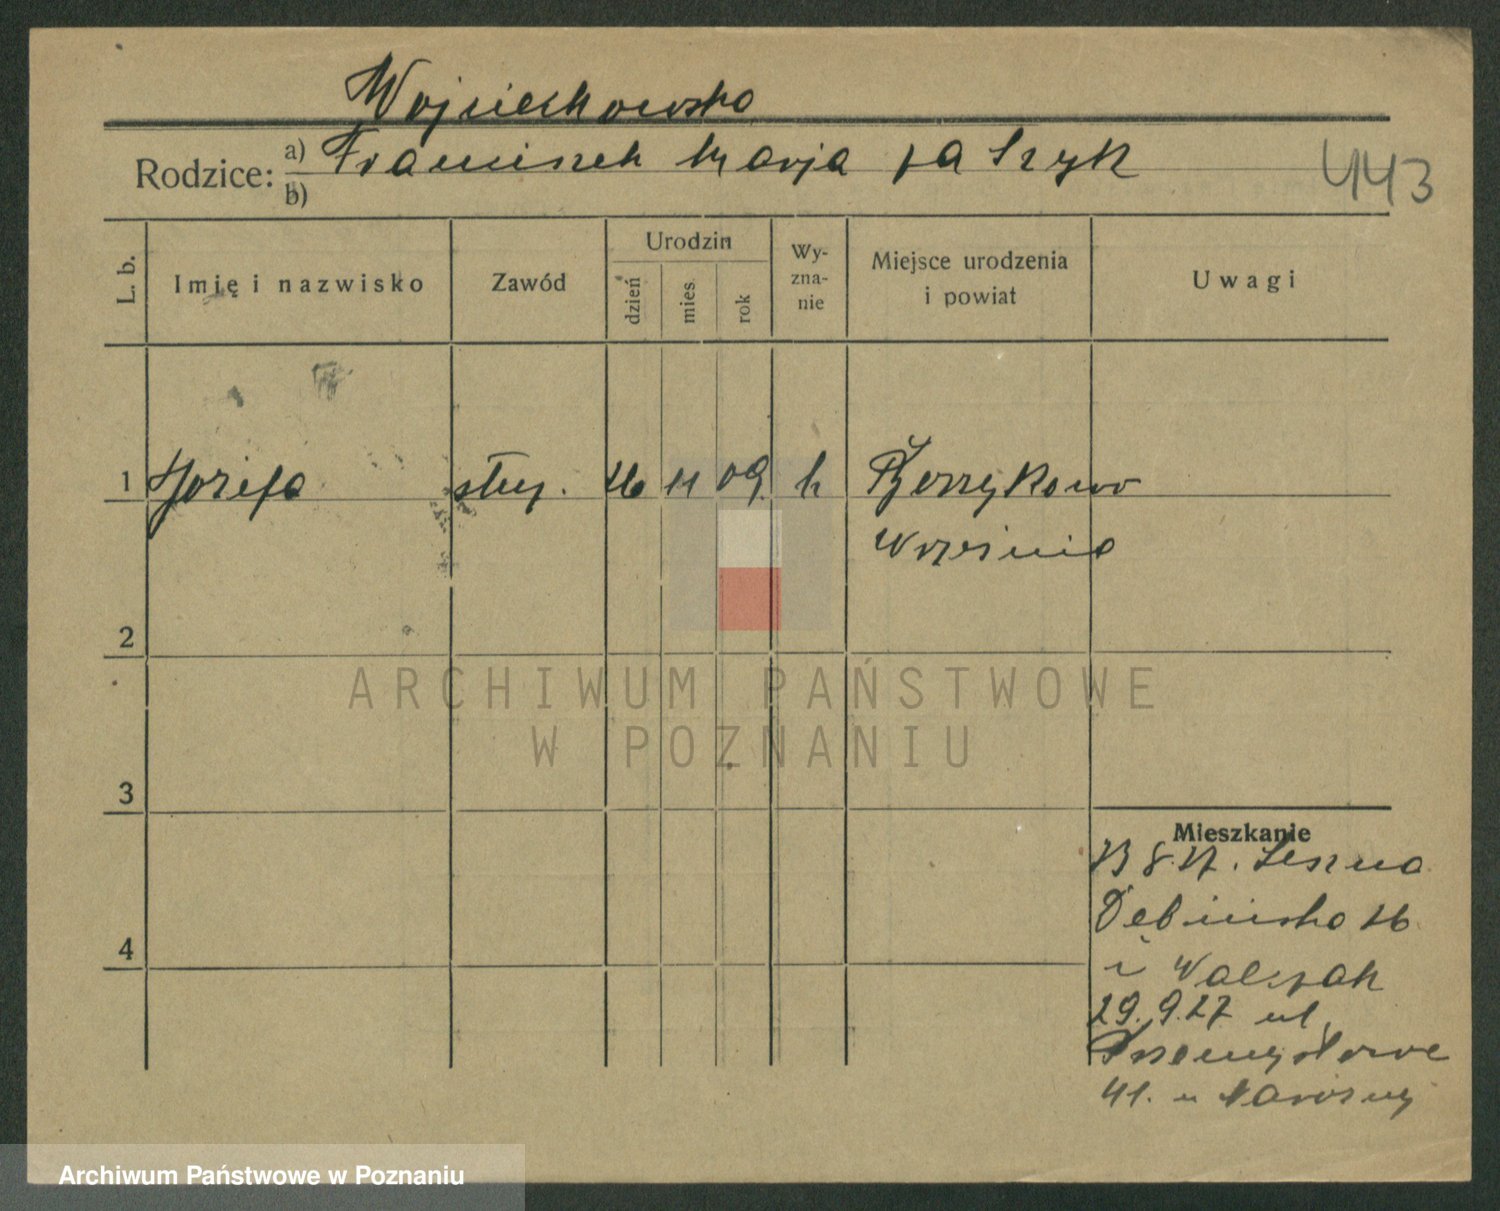 Wojciechowska
Rodzice: a) Franciszek Marja
b)
443
L. b.
Imię i nazwisko
Zawód
Urodzin
dzień
mies.
rok
Wy-
zna-
nie
Miejsce urodzenia
i powiat
Uwagi
1 Józefa służ. 16 11 09. k
Września
2
3
4
Mieszkanie
Leszna
Dębińska 16
i Walczak
29.9.27 ul.
Przemysłowa
41. u
ARCHIWUM PAŃSTWOWE
W POZNANIU
Archiwum Państwowe w Poznaniu